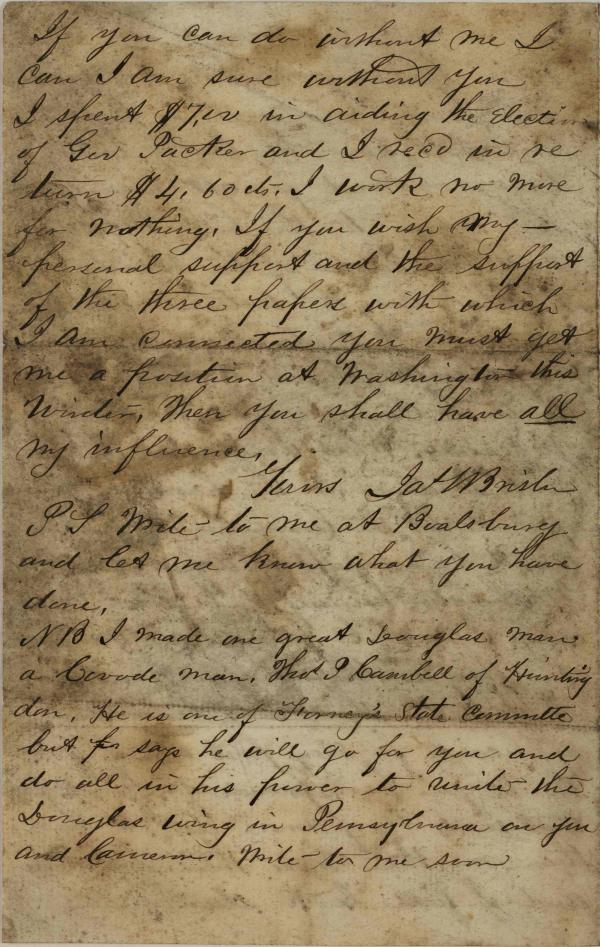 If you can do without me I
can I am sure without you
I spent $7,00 in aiding the Election
of Gov Packer and I recd in re
turn $4, 60 cts. I work no more
for nothing. If you wish my —
personal support and the support
of the three papers with which
I am connected you must get
me a position at Washington this
Winter, then you shall have all
my influence.
Yours Jas Brisbin
P S Write to me at Boalsburg
and let me know what you have
done,
NB I made one great Douglas man
a Covode man. Thos P Cambell of Hunting
don. He is one of Forney's State Committe
but says he will go for you and
do all in his power to unite the
Douglas wing in Pennsylvania on you
and Cameron. Write to me soon